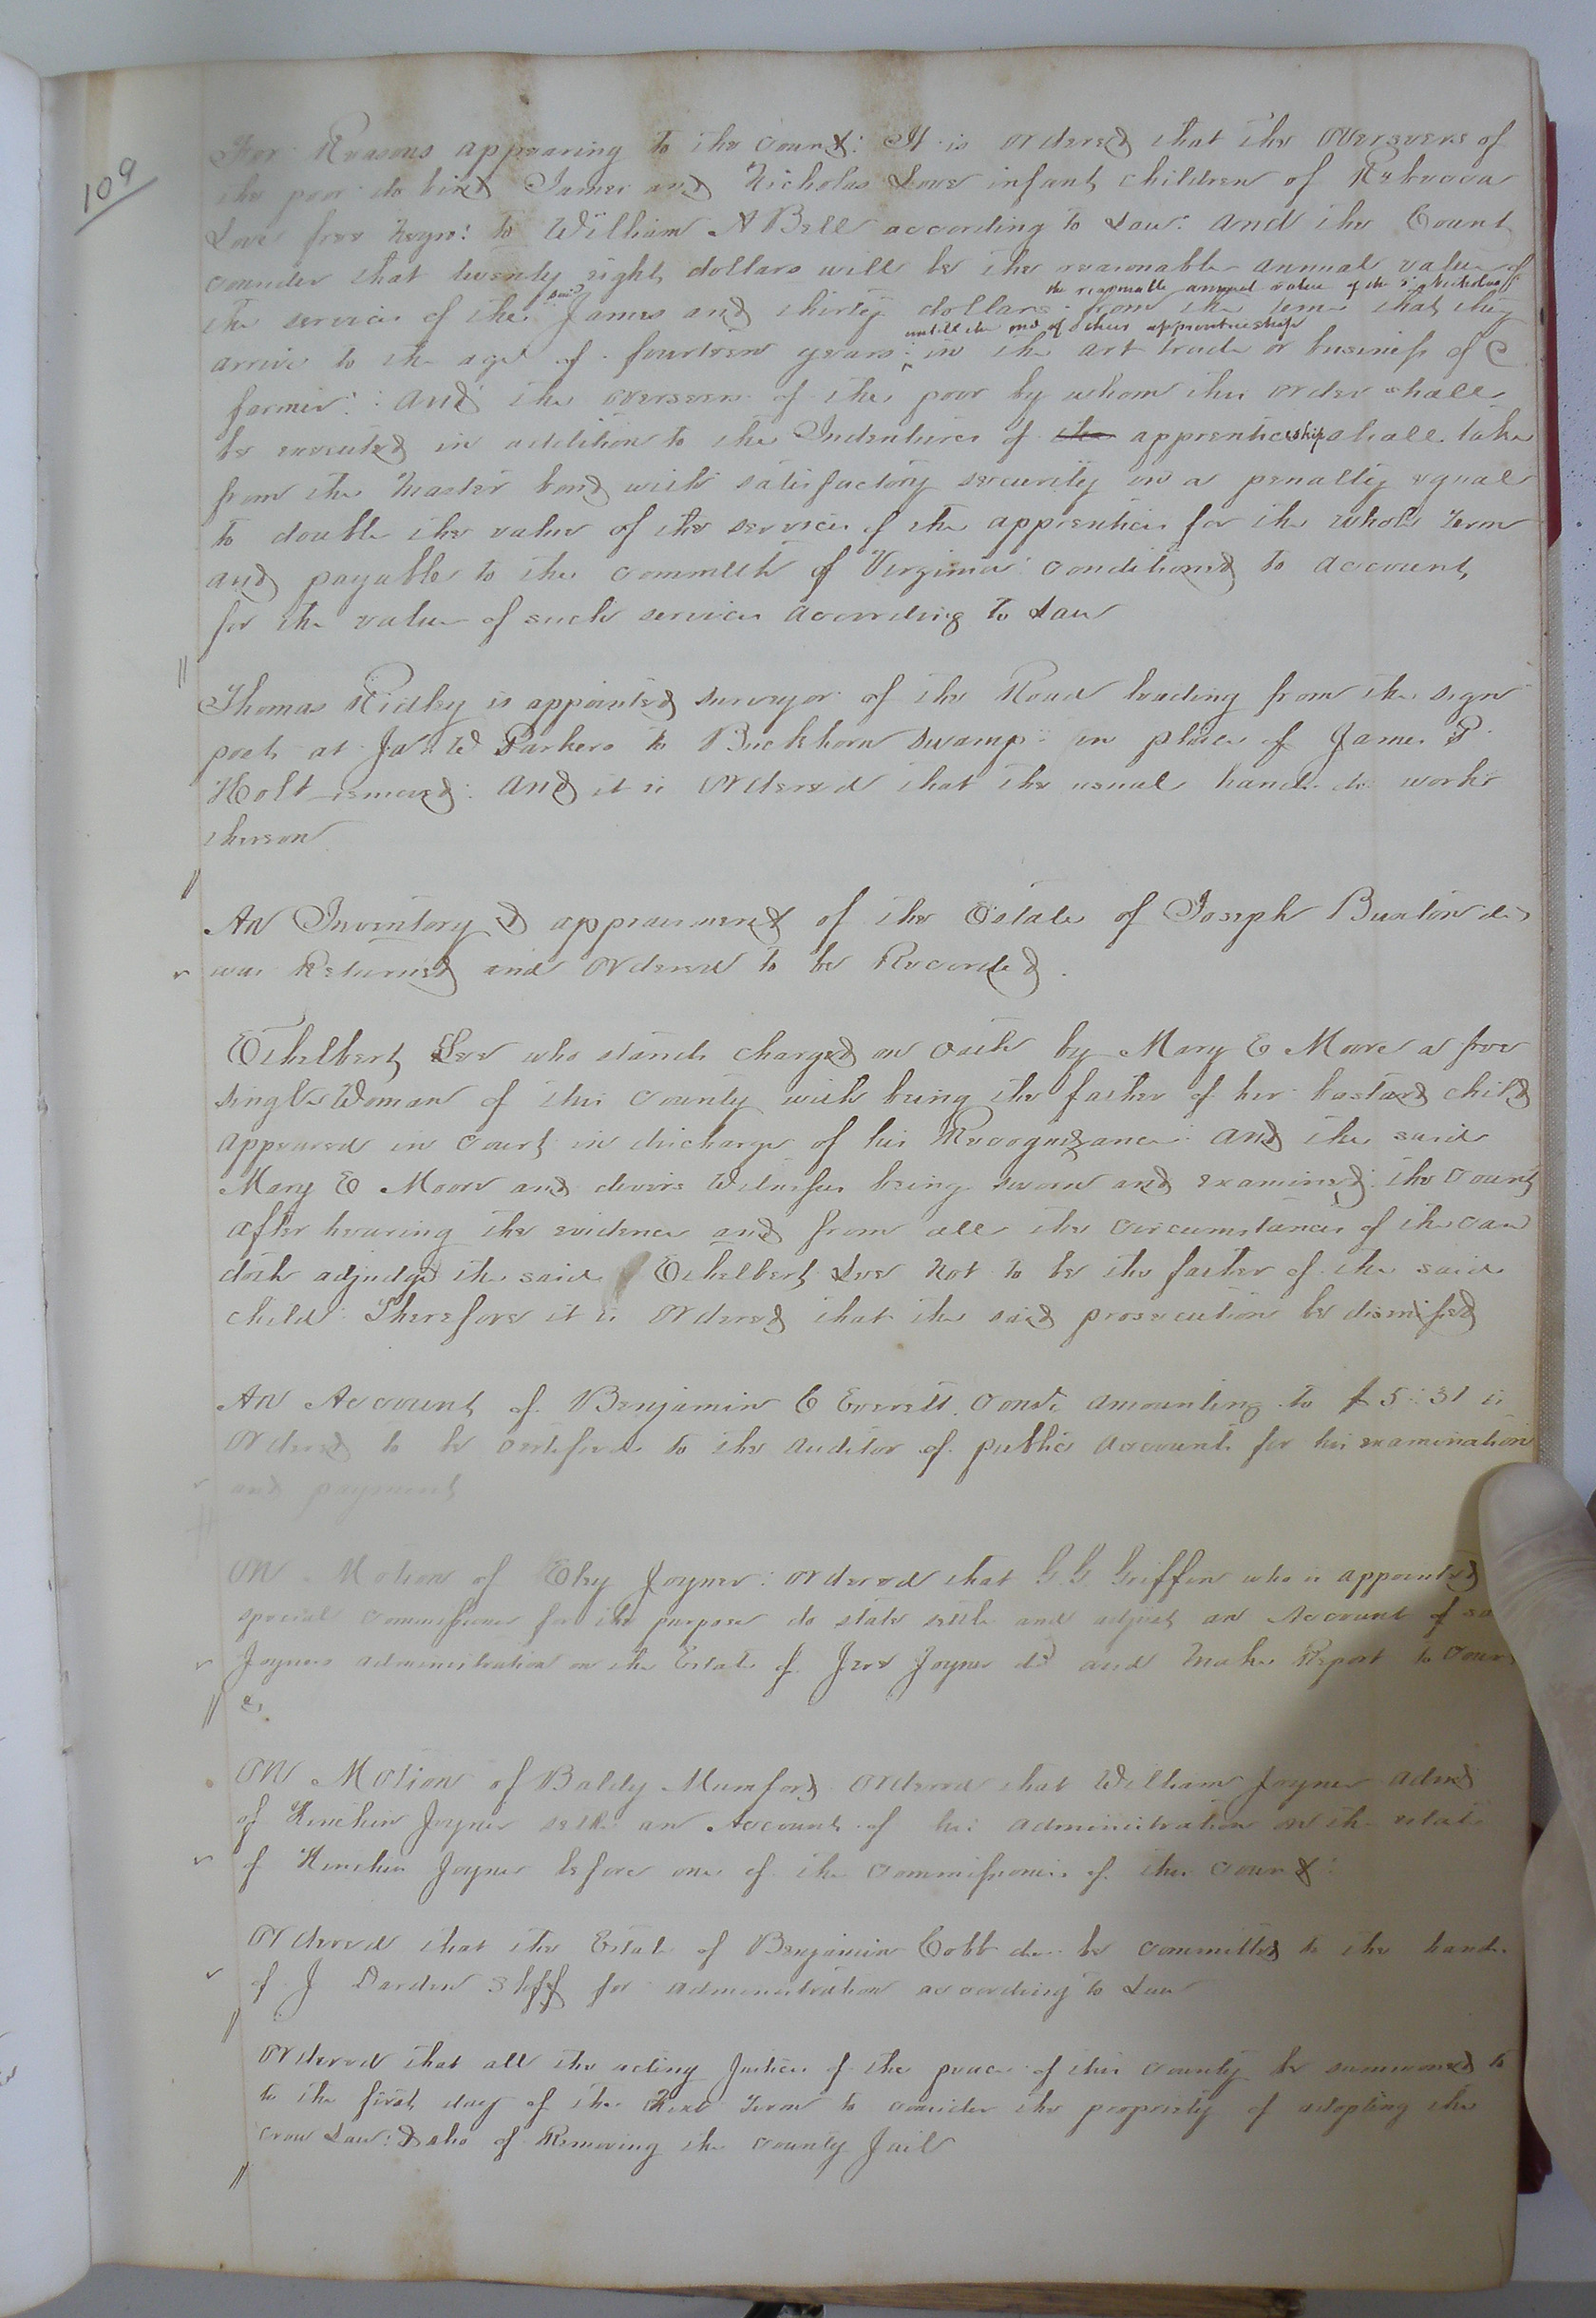 109
For Reasons appearing to the Court: It is ordered that the overseers of
the poor do bind James and Nicholas Love infant children of Rebecca
Love free Negro: to William A Bell according to Law: and the Court
consider that twenty eight dollars will be the reasonable annual value of
the reasonable annual value of the sd Nicholas
the services of the said James and thirty dollars from the time that they
untill the end of their apprenticeship
arrive to the age of fourteen years: in the art trade or business of a
farmer: and the overseers of the poor by whom this order shall
be executed in addition to the Indentures of the apprenticeship shall take
from the Master bond with satisfactory security in a penalty equal
to double the value of the services of the apprentices for the whole Term
and payable to the commlth of Virginia conditioned to account
for the value of such services according to Law
Thomas Ridley is appointed surveyor of the Road leading from the sign
post at Jas W Parkers to Buckhorn Swamp in place of James P
Holt removed: and it is ordered that the usual hands do work
thereon
An Inventory & appraisement of the Estate of Joseph Buxton decd
was Returned and ordered to be Recorded.
Ethelbert Lee who stands charged on oath by Mary E Moore a free
single Woman of this county with being the father of her bastard child
appeared in court in discharge of his Recognizance and the said
Mary E Moore and divers Witnesses being sworn and examined: the Court
after hearing the evidence and from all the circumstances of the case
doth adjudge the said Ethelbert Lee Not to be the father of the said
child: Therefore it is ordered that the said prosecution be dismissed
An Account of Benjamin E Everett Conste amounting to $5:31 is
ordered to be certified to the auditor of public accounts for his examination
and payment
On Motion of Eley Joyner: ordered that G. G. Griffin who is appointed
special commissioner for the purpose do state settle and adjust an Account of sd
Joyners administration on the Estate of Jere Joyner decd and Make Report to Court
&c.
On Motion of Baldy Mumford ordered that William Joyner admr
of Hinchin Joyner settle an Account of his administration on the estate
of Hinchin Joyner before one of the Commissioners of this Court:
Ordered that the Estate of Benjamin Cobb dec be committed to the hands
of J Darden Shff for administration according to Law
Ordered that all the acting Justices of the peace of this county be summoned to
to the first day of the Next Term to consider the propriety of adopting the
crow Law: & also of Removing the county Jail